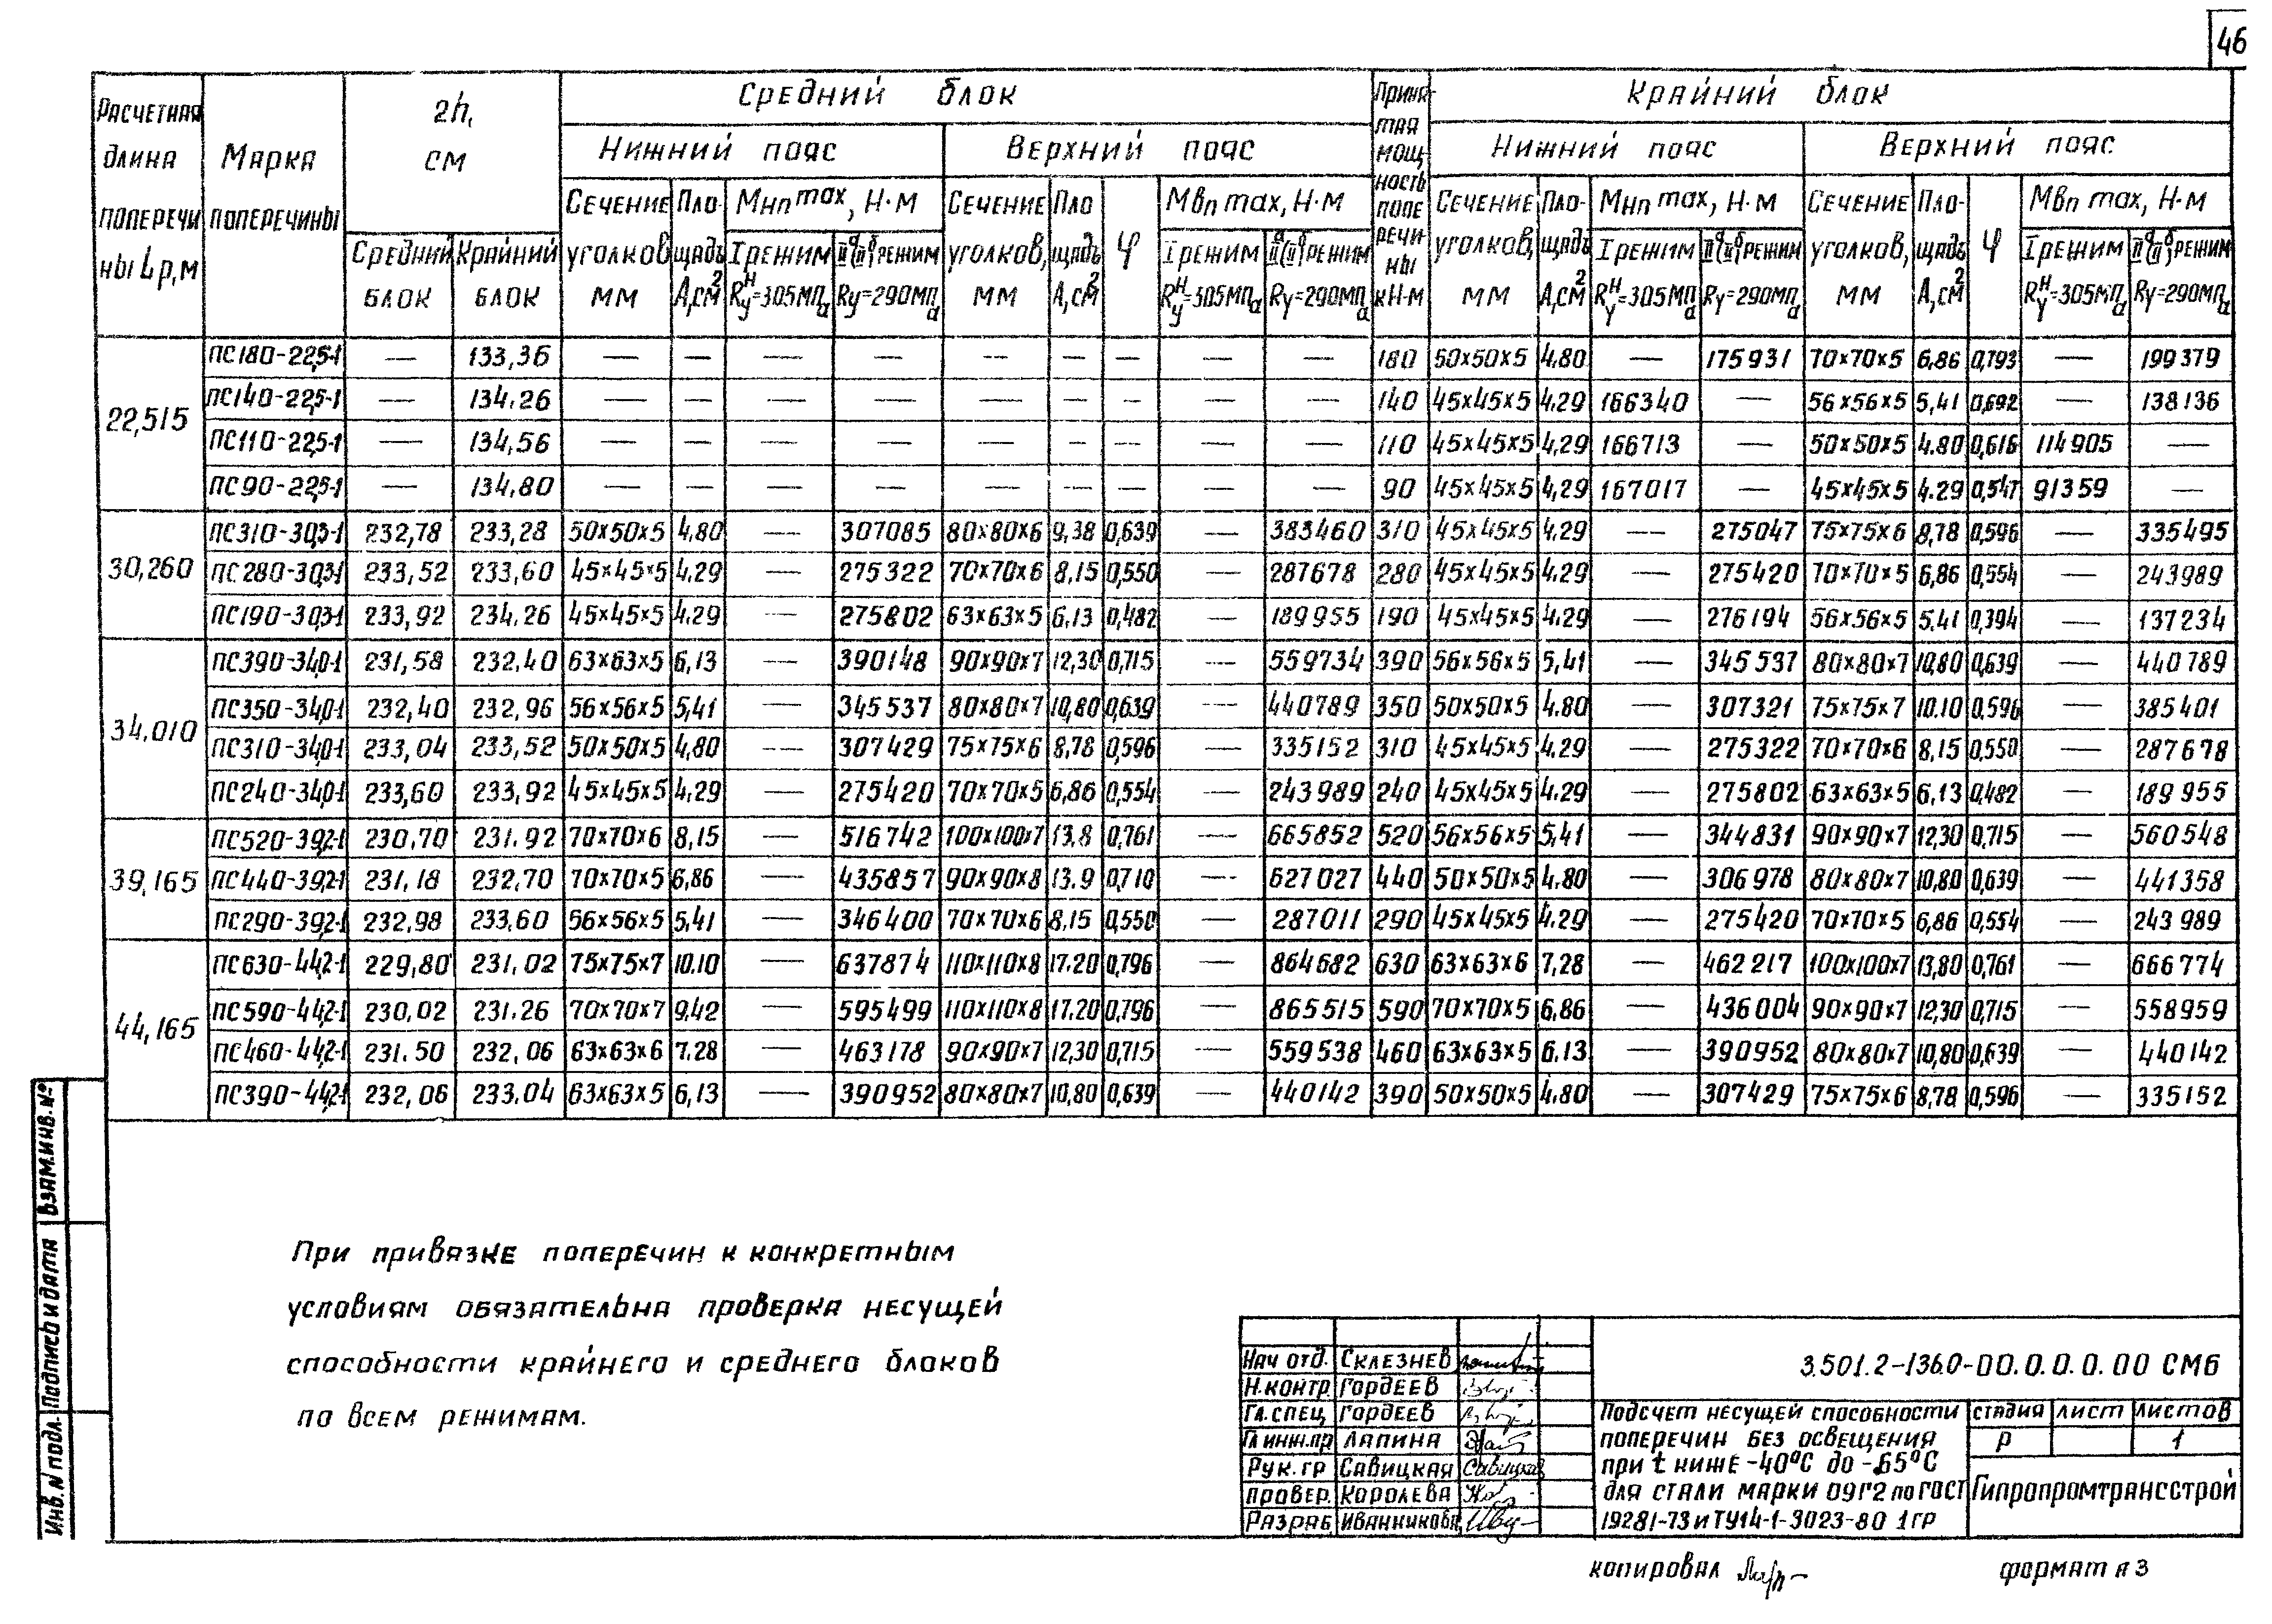 46
Расчетная длина поперечины Lр, м | Марка поперечины | 2h, см | Средний блок | Принятая мощность поперечины кН·м | Крайний блок
Средний блок | Крайний блок | Нижний пояс | Верхний пояс | Нижний пояс | Верхний пояс
Сечение уголков, мм | Площадь А, см² | Мнп max, Н·м | Сечение уголков, мм | Площадь А, см² | φ | Мвп max, Н·м | Сечение уголков, мм | Площадь А, см² | Мнп max, Н·м | Сечение уголков, мм | Площадь А, см² | φ | Мвп max, Н·м
I режим Rуᴴ=305МПа | IIᵃ(IIᵇ) режим Rу=290МПа | I режим Rуᴴ=305МПа | IIᵃ(IIᵇ) режим Rу=290МПа | I режим Rуᴴ=305МПа | IIᵃ(IIᵇ) режим Rу=290МПа | I режим Rуᴴ=305МПа | IIᵃ(IIᵇ) режим Rу=290МПа
22,515 | ПС180-22,5-1 | — | 133,36 | — | — | — | — | — | — | — | — | — | 180 | 50×50×5 | 4.80 | — | 175931 | 70×70×5 | 6.86 | 0,793 | — | 199379
ПС140-22,5-1 | — | 134.26 | — | — | — | — | — | — | — | — | — | 140 | 45×45×5 | 4.29 | 166340 | — | 56×56×5 | 5,41 | 0,692 | — | 138136
ПС110-22,5-1 | — | 134,56 | — | — | — | — | — | — | — | — | — | 110 | 45×45×5 | 4,29 | 166713 | — | 50×50×5 | 4.80 | 0,616 | 114905 | —
ПС90-22,5-1 | — | 134,80 | — | — | — | — | — | — | — | — | — | 90 | 45×45×5 | 4,29 | 167017 | — | 45×45×5 | 4.29 | 0,547 | 91359 | —
30,260 | ПС310-30,3-1 | 232,78 | 233,28 | 50×50×5 | 4,80 | — | 307085 | 80×80×6 | 9,38 | 0,639 | — | 383460 | 310 | 45×45×5 | 4.29 | — | 275047 | 75×75×6 | 8,78 | 0,596 | — | 335495
ПС280-30,3-1 | 233,52 | 233,60 | 45×45×5 | 4,29 | — | 275322 | 70×70×6 | 8,15 | 0,550 | — | 287678 | 280 | 45×45×5 | 4.29 | — | 275420 | 70×70×5 | 6,86 | 0,554 | — | 243989
ПС190-30,3-1 | 233,92 | 234,26 | 45×45×5 | 4.29 | — | 275802 | 63×63×5 | 6,13 | 0,482 | — | 189955 | 190 | 45×45×5 | 4.29 | — | 276194 | 56×56×5 | 5.41 | 0,394 | — | 137234
34,010 | ПС390-34,0-1 | 231,58 | 232,40 | 63×63×5 | 6,13 | — | 390148 | 90×90×7 | 12,30 | 0,715 | — | 559734 | 390 | 56×56×5 | 5,41 | — | 345537 | 80×80×7 | 10,80 | 0,639 | — | 440789
ПС350-34,0-1 | 232,40 | 232,96 | 56×56×5 | 5,41 | — | 345537 | 80×80×7 | 10,80 | 0,639 | — | 440789 | 350 | 50×50×5 | 4.80 | — | 307321 | 75×75×7 | 10.10 | 0,596 | — | 385401
ПС310-34,0-1 | 233,04 | 233,52 | 50×50×5 | 4,80 | — | 307429 | 75×75×6 | 8,78 | 0,596 | — | 335152 | 310 | 45×45×5 | 4.29 | — | 275322 | 70×70×6 | 8,15 | 0,550 | — | 287678
ПС240-34,0-1 | 233,60 | 233,92 | 45×45×5 | 4.29 | — | 275420 | 70×70×5 | 6,86 | 0,554 | — | 243989 | 240 | 45×45×5 | 4.29 | — | 275802 | 63×63×5 | 6.13 | 0,482 | — | 189955
39,165 | ПС520-39,2-1 | 230,70 | 231.92 | 70×70×6 | 8,15 | — | 516742 | 100×100×7 | 13,8 | 0,761 | — | 665852 | 520 | 56×56×5 | 5,41 | — | 344831 | 90×90×7 | 12,30 | 0,715 | — | 560548
ПС440-39,2-1 | 231,18 | 232,70 | 70×70×5 | 6,86 | — | 435857 | 90×90×8 | 13.9 | 0,710 | — | 627027 | 440 | 50×50×5 | 4.80 | — | 306978 | 80×80×7 | 10,80 | 0,639 | — | 441358
ПС290-39,2-1 | 232,98 | 233,60 | 56×56×5 | 5,41 | — | 346400 | 70×70×6 | 8,15 | 0,550 | — | 287011 | 290 | 45×45×5 | 4.29 | — | 275420 | 70×70×5 | 6,86 | 0,554 | — | 243989
44,165 | ПС630-44,2-1 | 229,80 | 231,02 | 75×75×7 | 10.10 | — | 637874 | 110×110×8 | 17.20 | 0,796 | — | 864682 | 630 | 63×63×6 | 7,28 | — | 462217 | 100×100×7 | 13,80 | 0,761 | — | 666774
ПС590-44,2-1 | 230,02 | 231.26 | 70×70×7 | 9,42 | — | 595499 | 110×110×8 | 17,20 | 0,796 | — | 865515 | 590 | 70×70×5 | 6,86 | — | 436004 | 90×90×7 | 12,30 | 0,715 | — | 558959
ПС460-44,2-1 | 231.50 | 232,06 | 63×63×6 | 7.28 | — | 463178 | 90×90×7 | 12,30 | 0,715 | — | 559538 | 460 | 63×63×5 | 6.13 | — | 390952 | 80×80×7 | 10,80 | 0,639 | — | 440142
ПС390-44,2-1 | 232,06 | 233.04 | 63×63×5 | 6,13 | — | 390952 | 80×80×7 | 10,80 | 0,639 | — | 440142 | 390 | 50×50×5 | 4.80 | — | 307429 | 75×75×6 | 8,78 | 0,596 | — | 335152
При привязке поперечин к конкретным
условиям обязательна проверка несущей
способности крайнего и среднего блоков
по всем режимам.
Взам.инв.№
Подпись и дата
Инв.№ подл.
Нач отд. Склезнев
Н.контр. Гордеев
Гл.спец Гордеев
Гл инж.пр Лапина
Рук.гр Савицкая
Провер. Королева
Разраб Иванникова
3.501.2-136.0-00.0.0.0.00 СМ6
Подсчет несущей способности
поперечин без освещения
при t ниже -40°С до -65°С
для стали марки 09Г2 по ГОСТ
19281-73 и ТУ14-1-3023-80 1гр
стадия лист листов
Р 1
Гипропромтрансстрой
копировал
формат А3